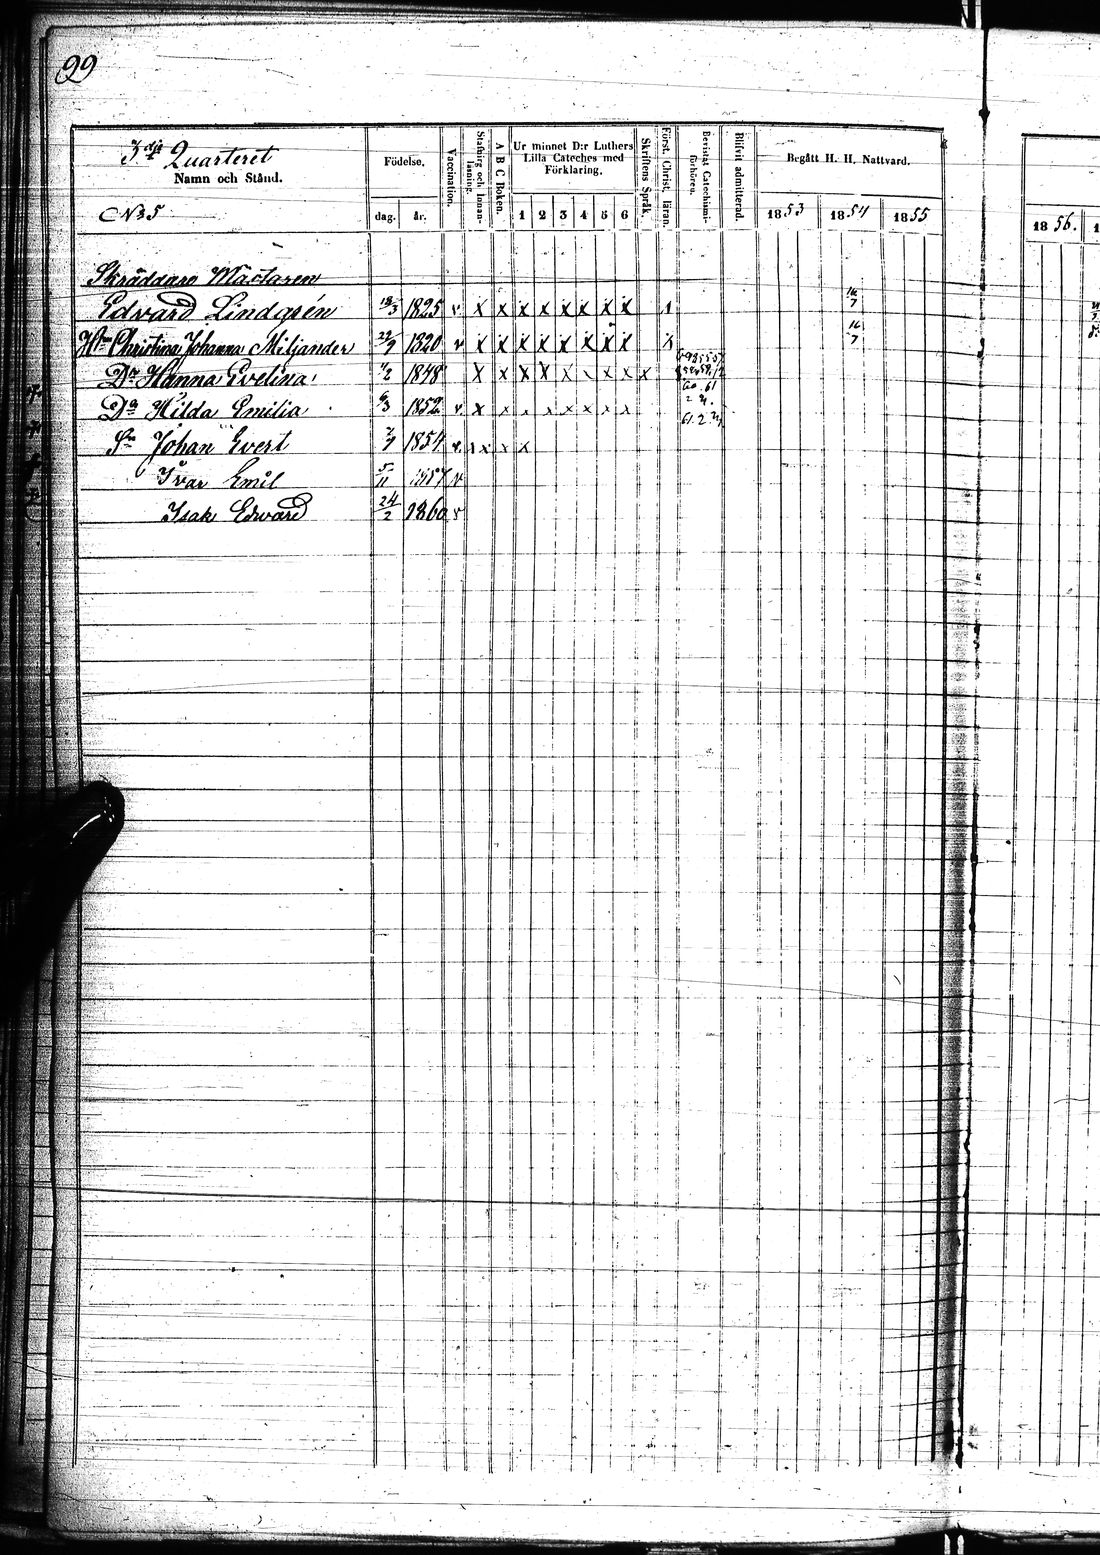 99
3dje Quarteret
Namn och Stånd.
No 5
Födelse.
dag. år.
Vaccination.
Stafning och Innan-läsning.
A B C Boken.
Ur minnet D:r Luthers
Lilla Cateches med
Förklaring.
1 2 3 4 5 6
Skriftens Språk.
Först. Christ. läran.
Bevistat Catechismi-förhören.
Blifvit admitterad.
Begått H. H. Nattvard.
1853 1854 1855
1856.
Skräddare Mästaren
Edvard Lindgrén 18/3 1825 v x x x x x x x x 16/7
Hu Christina Johanna Miljander 22/9 1820 v x x x x x x x x x 16/7
Dr Hanna Evelina 1/2 1848 x x x x x x x x x
60. 61
Dr Hilda Emilia 6/3 1852 v. x x x x x x x x
61.
Sn Johan Evert 1854 v. x x x
Ivar Emil 5/11 1857 v
Isak Edward 24/2 1860 v